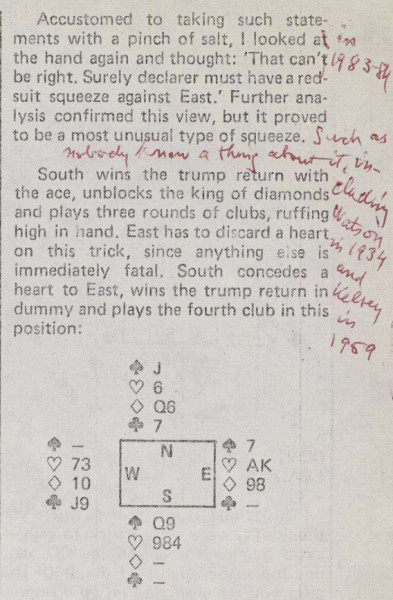 Accustomed to taking such state-
ments with a pinch of salt, I looked at
the hand again and thought: 'That can't
be right. Surely declarer must have a red-
suit squeeze against East.' Further ana-
lysis confirmed this view, but it proved
to be a most unusual type of squeeze.
in
1983-84
Such as
nobody knew a thing about it, in-
cluding
Watson
in 1934
and
Kelsey
in
1959
South wins the trump return with
the ace, unblocks the king of diamonds
and plays three rounds of clubs, ruffing
high in hand. East has to discard a heart
on this trick, since anything else is
immediately fatal. South concedes a
heart to East, wins the trump return in
dummy and plays the fourth club in this
position:
♠ J
♡ 6
♢ Q6
♣ 7
♠ –
♡ 73
♢ 10
♣ J9
N
W E
S
♠ 7
♡ AK
♢ 98
♣ –
♠ Q9
♡ 984
♢ –
♣ –